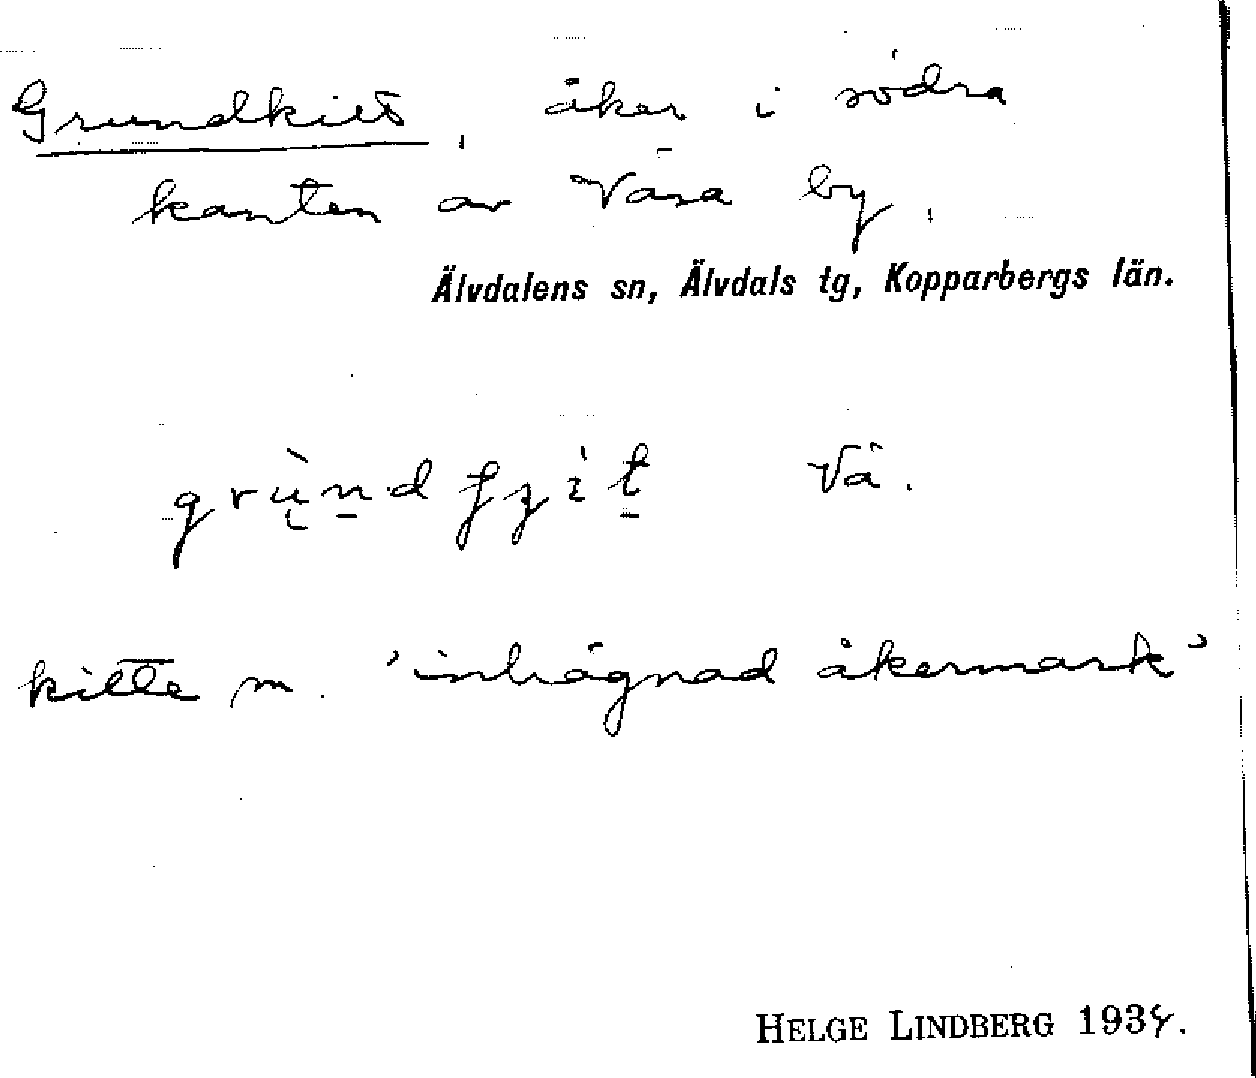 Grundkitt, åker i södra
kanten av Väsa by.
Älvdalens sn, Älvdals tg, Kopparbergs län.
Vä.
kitte m. 'inhägnad åkermark'
HELGE LINDBERG 1934.